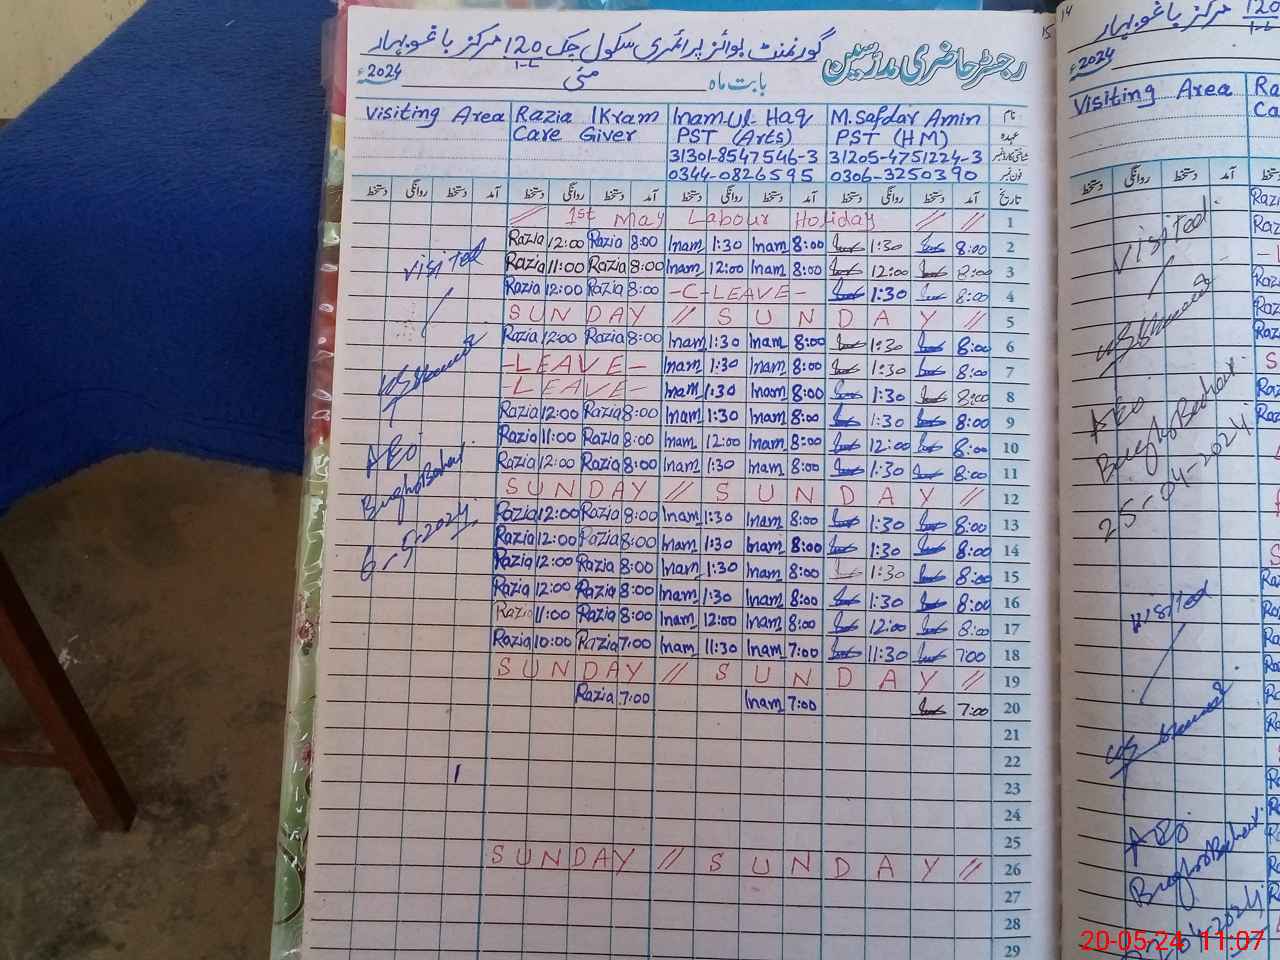 گورنمنٹ بوائز پرائمری سکول چک 120 1-L مرکز باغوبہار
رجسٹر حاضری مدرسین
بابت ماہ مئی 2024ء
Visiting Area Razia IKram Inam-ul-Haq M.Safdar Amin نام
Care Giver PST (Arts) PST (HM) عہدہ
31301-8547546-3 31205-4751224-3 شناختی کارڈ نمبر
0344-0826595 0306-3250390 فون نمبر
تاریخ آمد دستخط روانگی دستخط آمد دستخط روانگی دستخط آمد دستخط روانگی دستخط آمد دستخط روانگی دستخط
// 1st May Labour Holiday // // 1
Razia 12:00 Razia 8:00 Inam 1:30 Inam 8:00 1:30 8:00 2
Razia 11:00 Razia 8:00 Inam 12:00 Inam 8:00 12:00 8:00 3
Razia 12:00 Razia 8:00 -C-LEAVE- 1:30 8:00 4
SUNDAY // SUNDAY // 5
Razia 12:00 Razia 8:00 Inam 1:30 Inam 8:00 1:30 8:00 6
-LEAVE- Inam 1:30 Inam 8:00 1:30 8:00 7
-LEAVE- Inam 1:30 Inam 8:00 1:30 8:00 8
Razia 12:00 Razia 8:00 Inam 1:30 Inam 8:00 1:30 8:00 9
Razia 11:00 Razia 8:00 Inam 12:00 Inam 8:00 12:00 8:00 10
Razia 12:00 Razia 8:00 Inam 1:30 Inam 8:00 1:30 8:00 11
SUNDAY // SUNDAY // 12
Razia 12:00 Razia 8:00 Inam 1:30 Inam 8:00 1:30 8:00 13
Razia 12:00 Razia 8:00 Inam 1:30 Inam 8:00 1:30 8:00 14
Razia 12:00 Razia 8:00 Inam 1:30 Inam 8:00 1:30 8:00 15
Razia 12:00 Razia 8:00 Inam 1:30 Inam 8:00 1:30 8:00 16
Razia 11:00 Razia 8:00 Inam 12:00 Inam 8:00 12:00 8:00 17
Razia 10:00 Razia 7:00 Inam 11:30 Inam 7:00 11:30 7:00 18
SUNDAY // SUNDAY // 19
Razia 7:00 Inam 7:00 7:00 20
21
22
23
24
25
SUNDAY // SUNDAY // 26
27
28
29
visited
AEO
6-5-2024
15
14
مرکز باغوبہار 120 1-L
2024ء
Visiting Area
دستخط روانگی دستخط آمد
visited
AEO
25-04-2024
visited
AEO
20-05-24 11:07